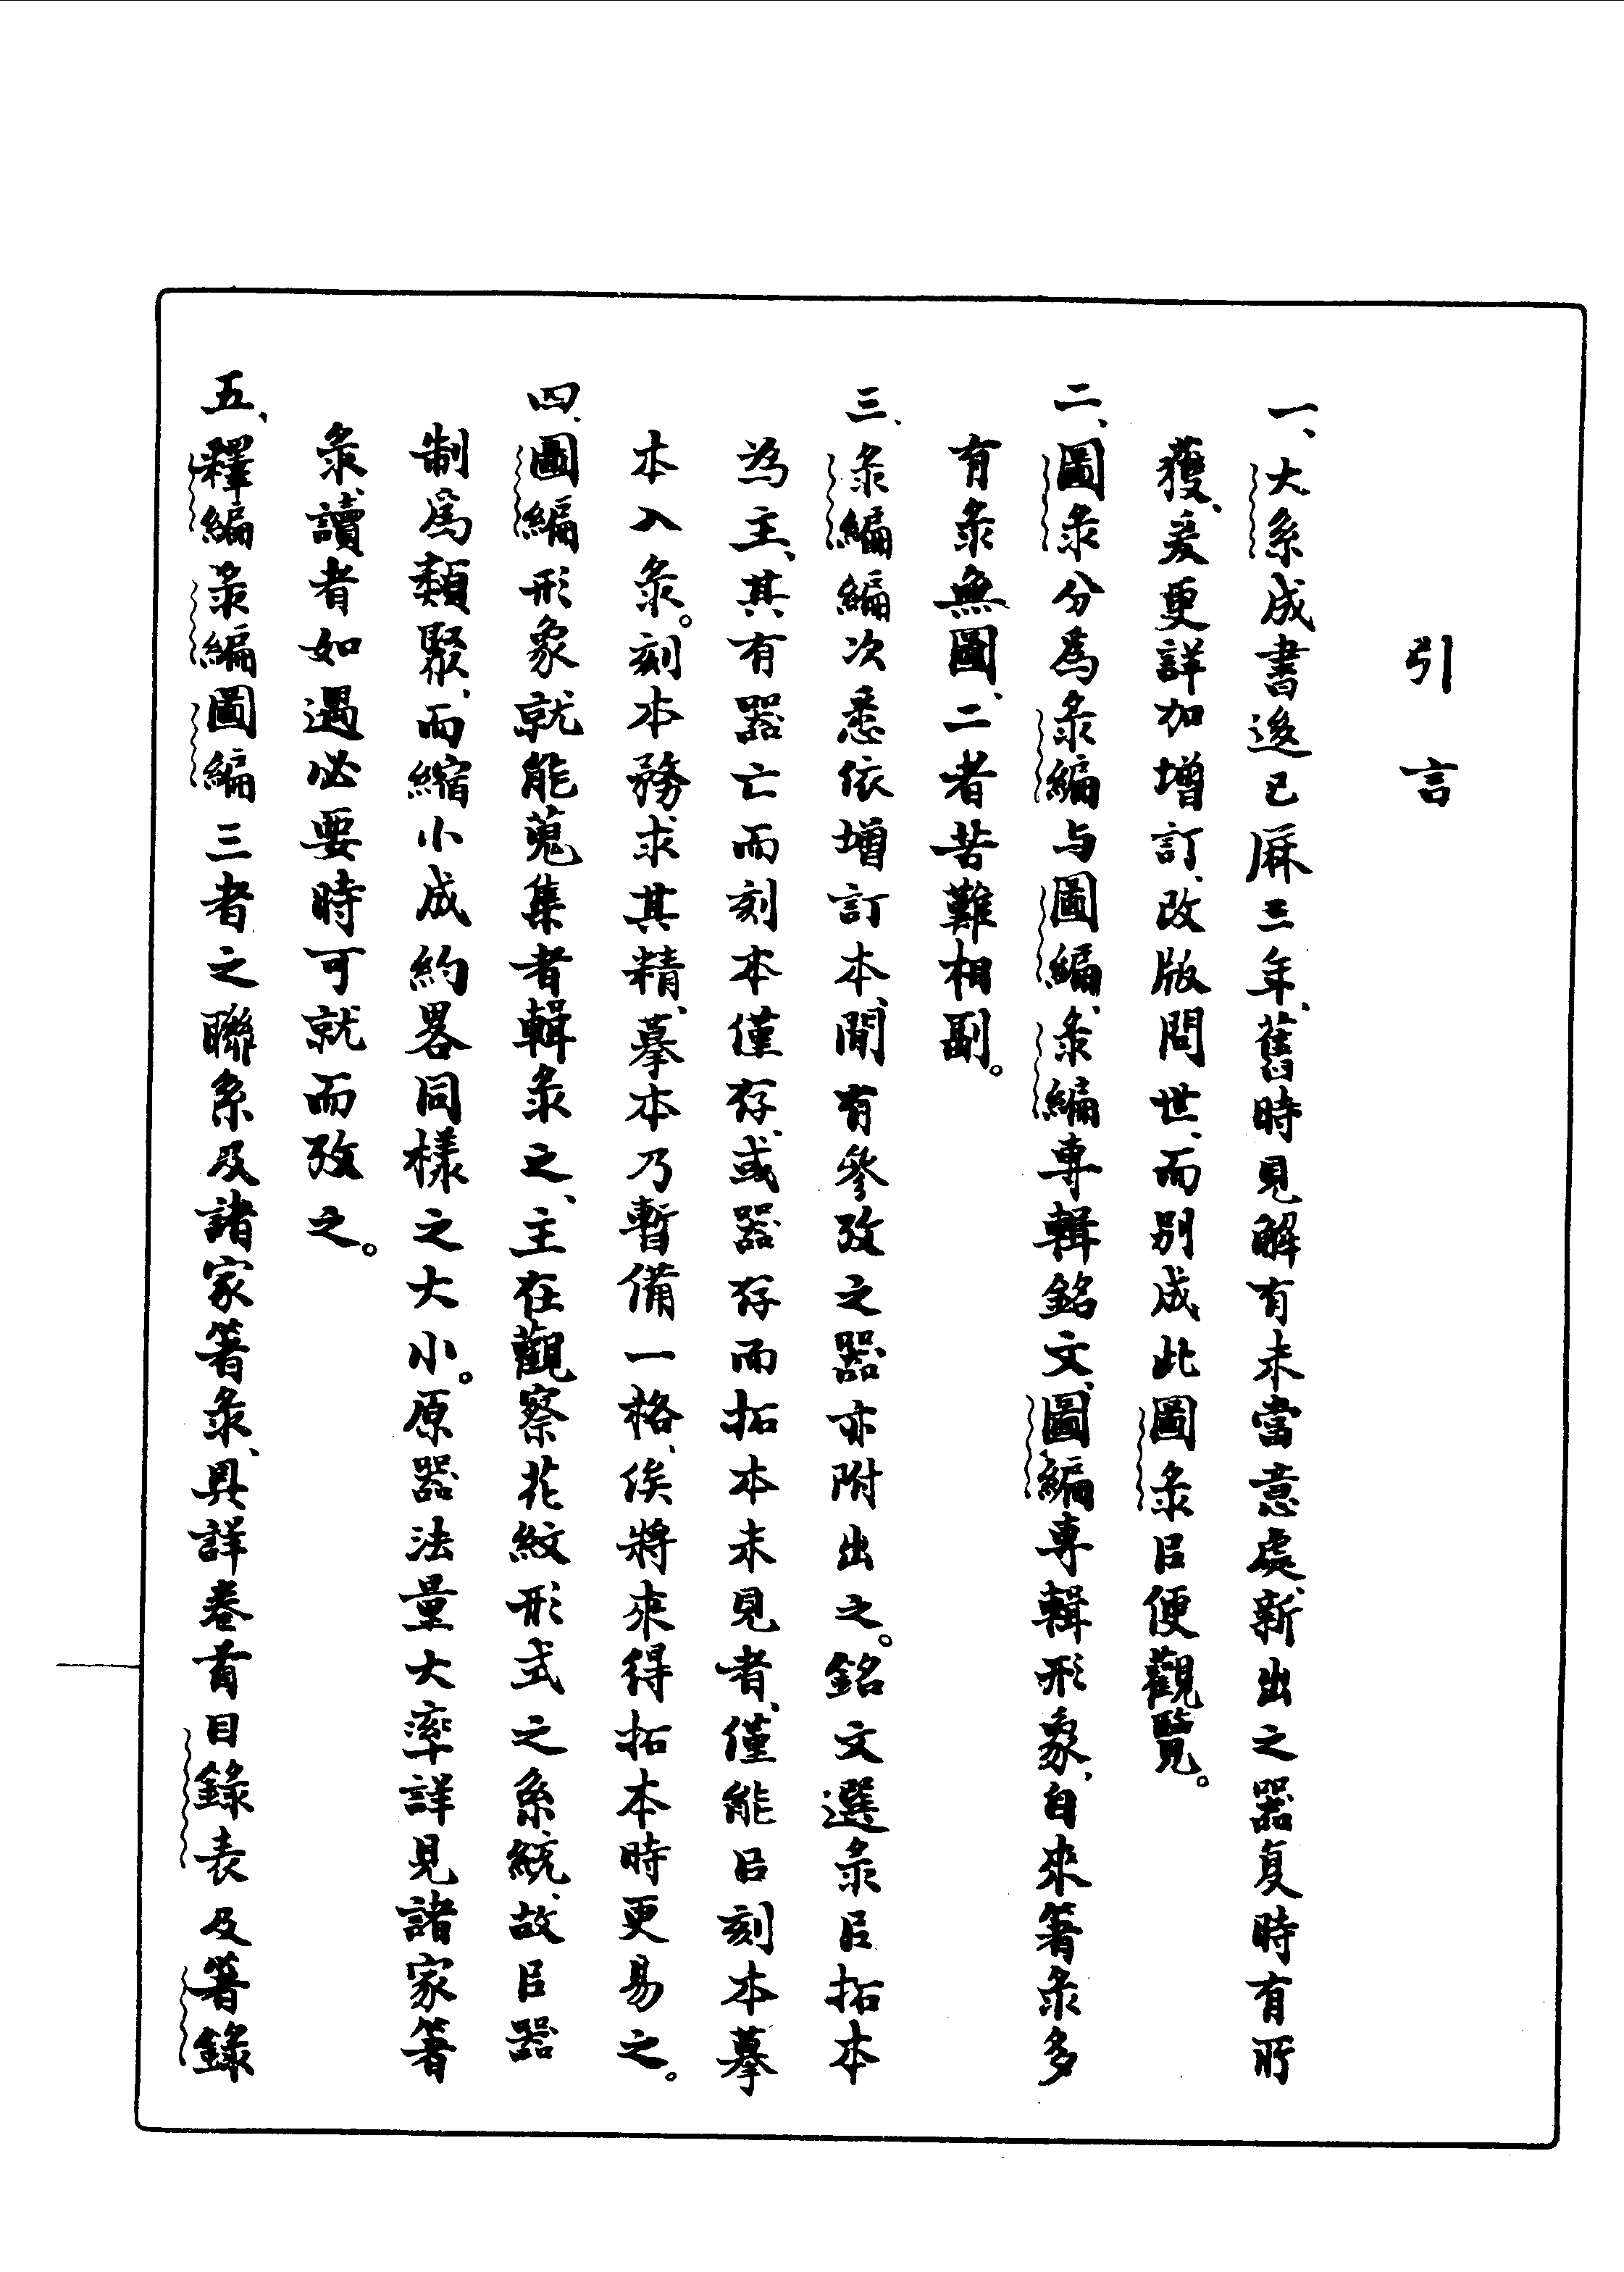 引言
一、大系成書後已厤三年、舊時見解有未當意處、新出之器复時有所
獲、爰更詳加增訂、改版問世、而別成此圖彔㠯便觀覽。
二、圖彔分爲彔編与圖編、彔編專輯銘文、圖編專輯形象、自來箸彔多
有彔無圖、二者苦難相副。
三、彔編編次悉依增訂本、閒有參攷之器亦附出之。銘文選彔㠯拓本
為主、其有器亡而刻本僅存、或器存而拓本未見者、僅能㠯刻本摹
本入彔。刻本務求其精、摹本乃暫備一格、俟將來得拓本時更易之。
四、圖編形象就能蒐集者輯彔之、主在觀察花紋形式之系統、故㠯器
制爲類聚、而縮小成約畧同樣之大小。原器法量大率詳見諸家箸
彔、讀者如遇必要時可就而攷之。
五、釋編彔編圖編三者之聯系及諸家箸彔、具詳卷首目錄表及箸錄